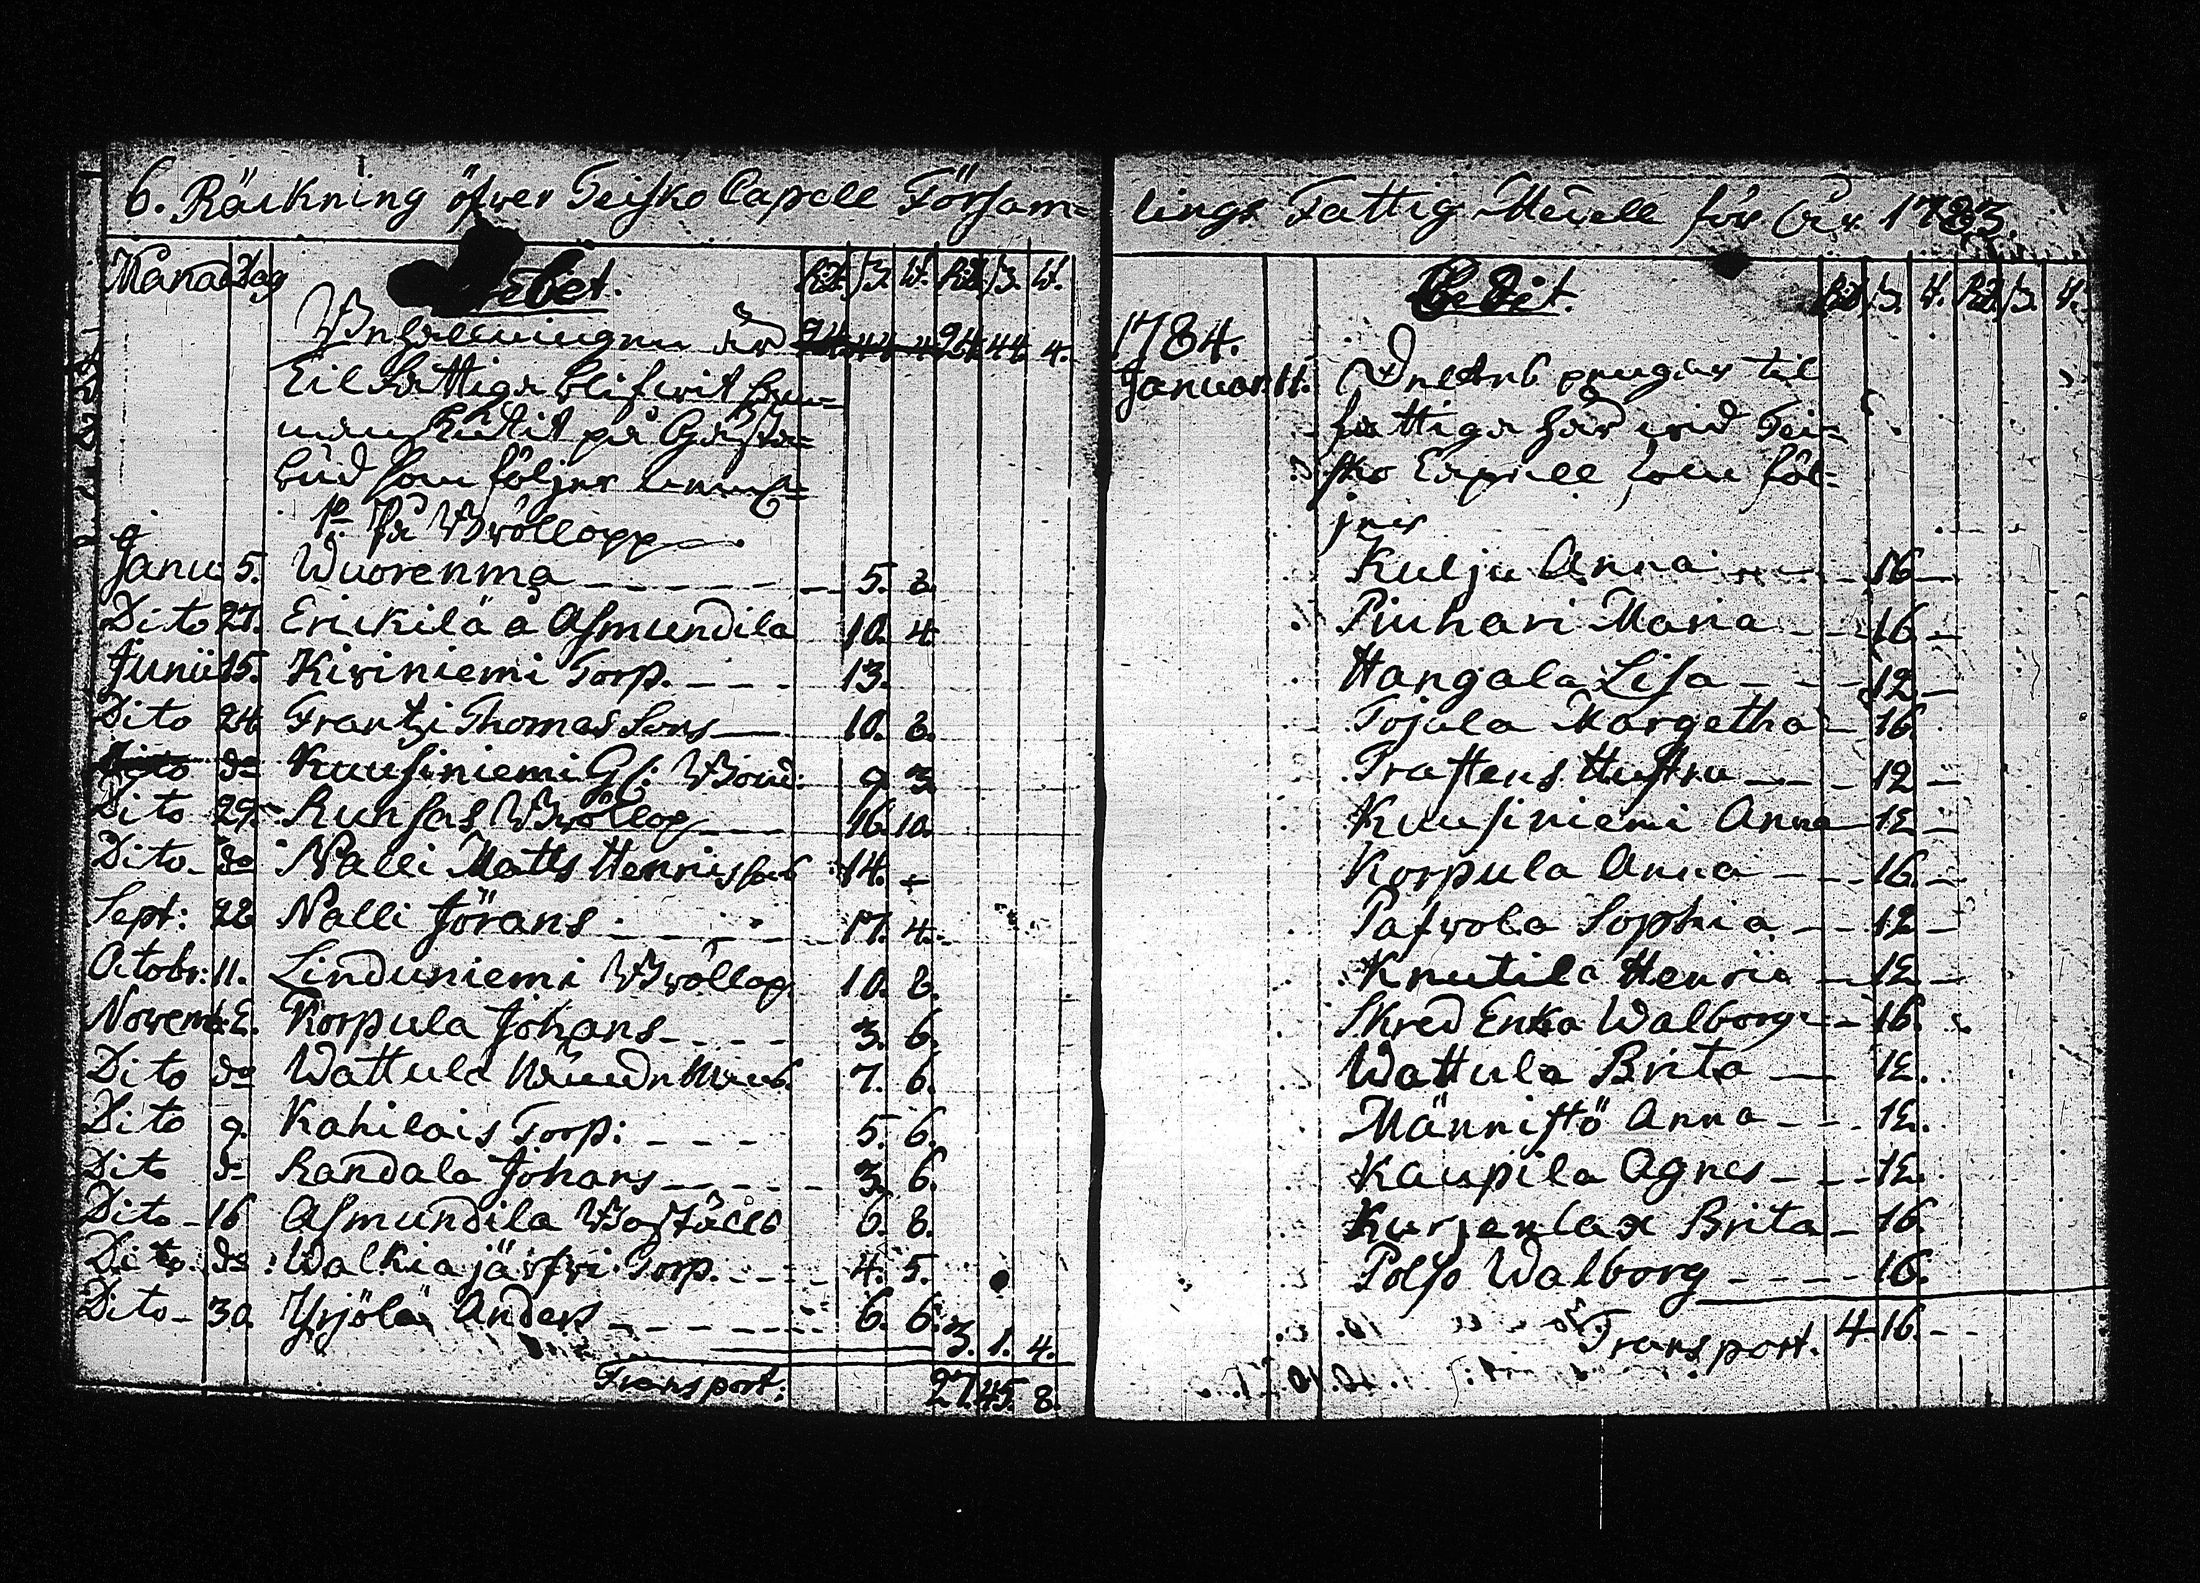 6. Räckning öfver Teisko Capell Försam=
Månad Dag Debet. Rd. ß. d. Rd. ß. d.
Behållningen är 24. 44. 4.
Til Fattiga blifwit sam=
manskutit på Gästa=
bud som följer nemb.
1o På Bröllopp
Janu 5. Wuorenmå 5. 8.
Dito 27. Erickilä å Asmundila 10. 4
Junii 15. Kiviniemi Torp. 13.
Dito 24 Frantzi Thomas Sons 10. 8.
do Kuusiniemi 9 3
Dito 29. Runsas Bröllop 16. 10.
Dito do Nalli Matts Henricssons 14. -
Sept: 28 Nalli Jörans 17. 4.
Octobr: 11. Linduniemi Bröllop. 10. 8.
Novemb. 2. Korpula Johans 3. 6.
Dito do Wattula 7. 6.
Dito 9. Kahilais Torp: 5. 6.
Dito do Randala Johans 3. 6.
Dito 16 Asmundila 6. 8.
Dito. do Walkiajärfvi Torp. 4. 5.
Dito 30. Yrjölä Anders 6. 6. 3. 1. 4.
Transport: 27. 45. 8.
lings Fattig Medell för år 1783.
Credit. Rd. ß. d. Rd. ß. d.
1784.
Januar. 11. Deltes pengar til
fattiga här wid Tei=
sko Capell som föl=
jer
Kulju Anna 16
Piuhari Maria 16
Hangala Lisa 12
Tojala Margetha 16
Trastens Hustru 12
Kuusiniemi Anna 12
Korpula Anna 16
Pafvola Sophia 12
Knutila Henric 12
Skred Enka Walborg 16.
Wattula Brita 12.
Männistö Anna 12.
Kaupila Agnes 12.
Kurjenlax Brita 16.
Polso Walborg 16.
Transport. 4 16.